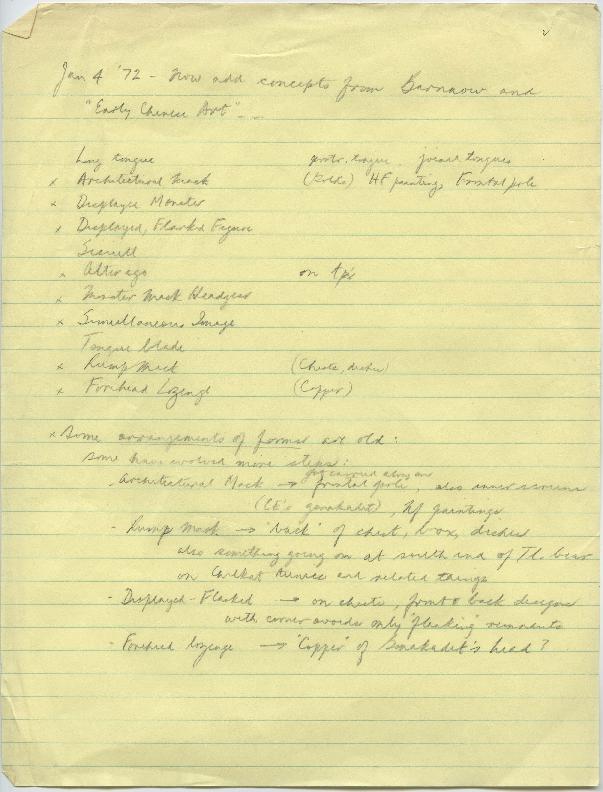 Jan 4 '72 - Now add concepts from Barnaow and
"Early Chinese Art" ...
Long tongue protr. tongue. joined tongues
x Architectural Mask HF painting, Frontal pole
x Displayed Monster
x Displayed, Flanked Figure
Sisiutl
x Alter ego on tp's
x Monster Mask Headgear
x Simultaneous Image
Tongue blade
x Rump Mask (Chests, dishes)
x Forehead Lozenge (Copper)
x Some arrangements of formal are old:
some have evolved more steps:
got carried along on
- Architectural Mask → frontal pole also inner screens
(CE's gonakadet), Hf paintings
- Rump Mask → 'back' of chest, box, dishes
also something going on at south end of bear
on Chilkat tunics and related things
- Displayed-Flanked → on chests, front & back designs
with corner avoids only 'flanking' remnants
- Forehead lozenge → 'Copper' of Gonakadet's head?